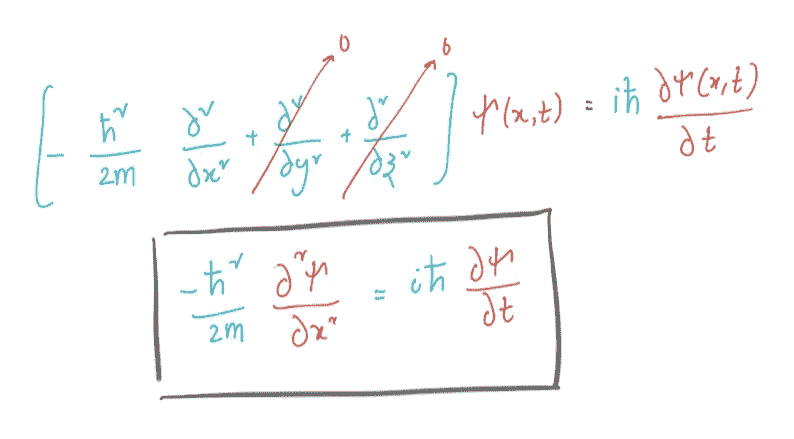 [ - ℏ²/2m ∂²/∂x² + ∂²/∂y² → 0 + ∂²/∂z² → 0 ] ψ(x,t) = iℏ ∂ψ(x,t)/∂t
-ℏ²/2m ∂²ψ/∂x² = iℏ ∂ψ/∂t